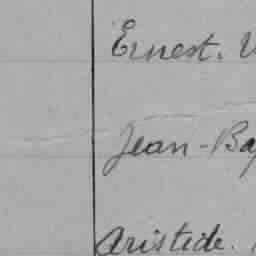 Ernest.
Jean-Ba
Aristide.